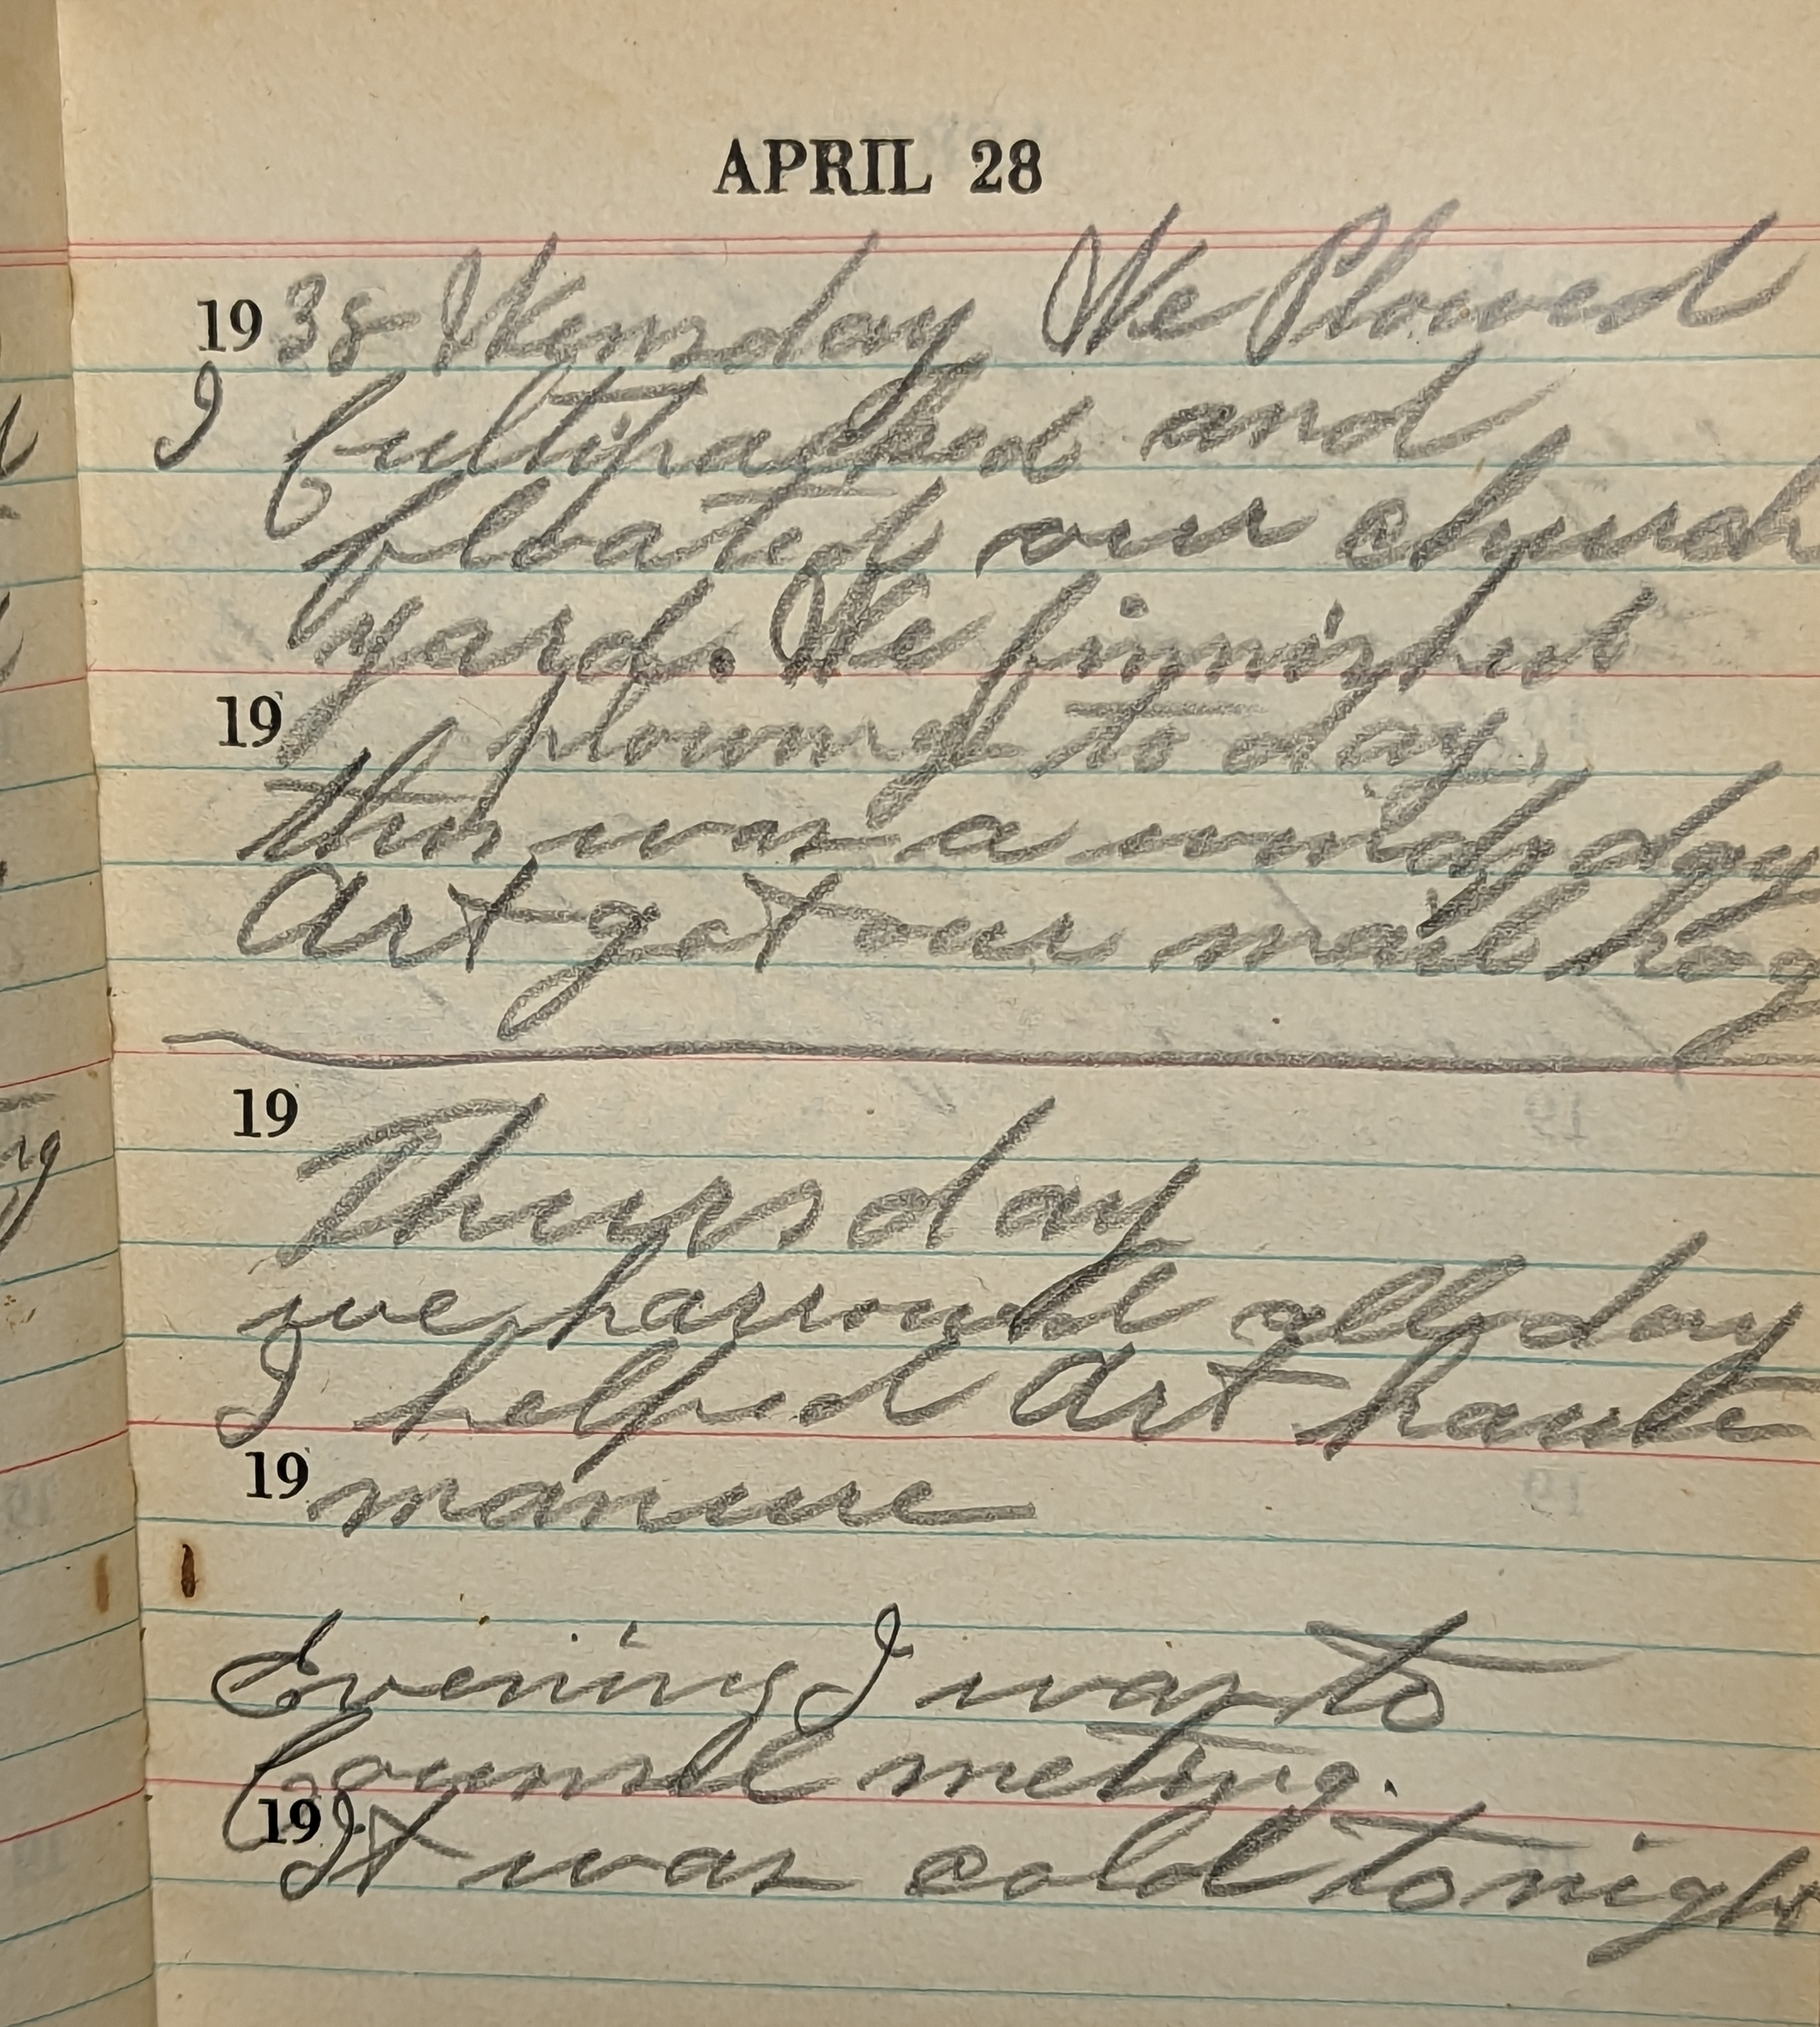 APRIL 28
1938 Wensday We Plowed
I Cultipacked and
floated our church
yard. We finnished
19 plowing to day
this was a windy day
Art got our male hog
19
Thursday
we harrowed all day
I helped Art haule
19 manure
Evening I was to
Counsil meting.
19 It was cold tonight